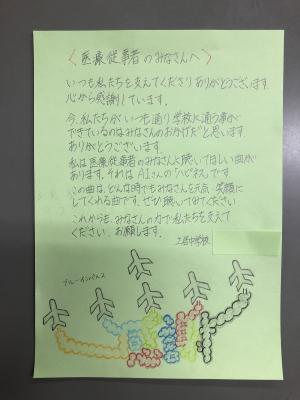 〈医療従事者のみなさんへ〉
いつも私たちを支えてくださりありがとうございます。
心から感謝しています。
今、私たちがいつも通り学校に通う事が
できているのはみなさんのおかげだと思います
ありがとうございます。
私は医療従事者のみなさんに聴いてほしい曲が
あります。それはAIさんの「ハピネス」です
この曲は、どんな時でもみなさんを元気 笑顔に
してくれる曲です。ぜひ聴いてみてください
これからも、みなさんの力で私たちを支えて
ください。お願します。
中学校
ブルーインパルス